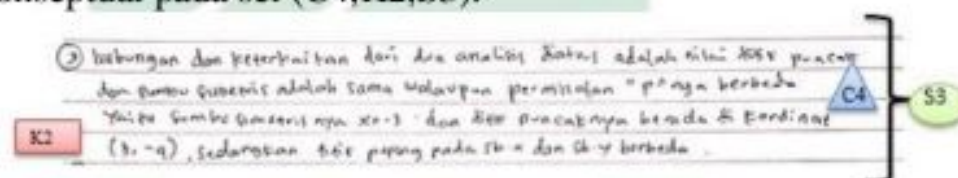 konseptual pada sel (C4,K2,S3).
③ hubungan dan keterkaitan dari dua analisis diatas adalah nilai titik puncak
dan sumbu simetris adalah sama walaupun permisalan "p" nya berbeda
yaitu sumbu simetris nya x=-3 dan titik puncaknya berada di kordinat
(3, -9), sedangkan titik potong pada sb x dan sb y berbeda.
C4
S3
K2